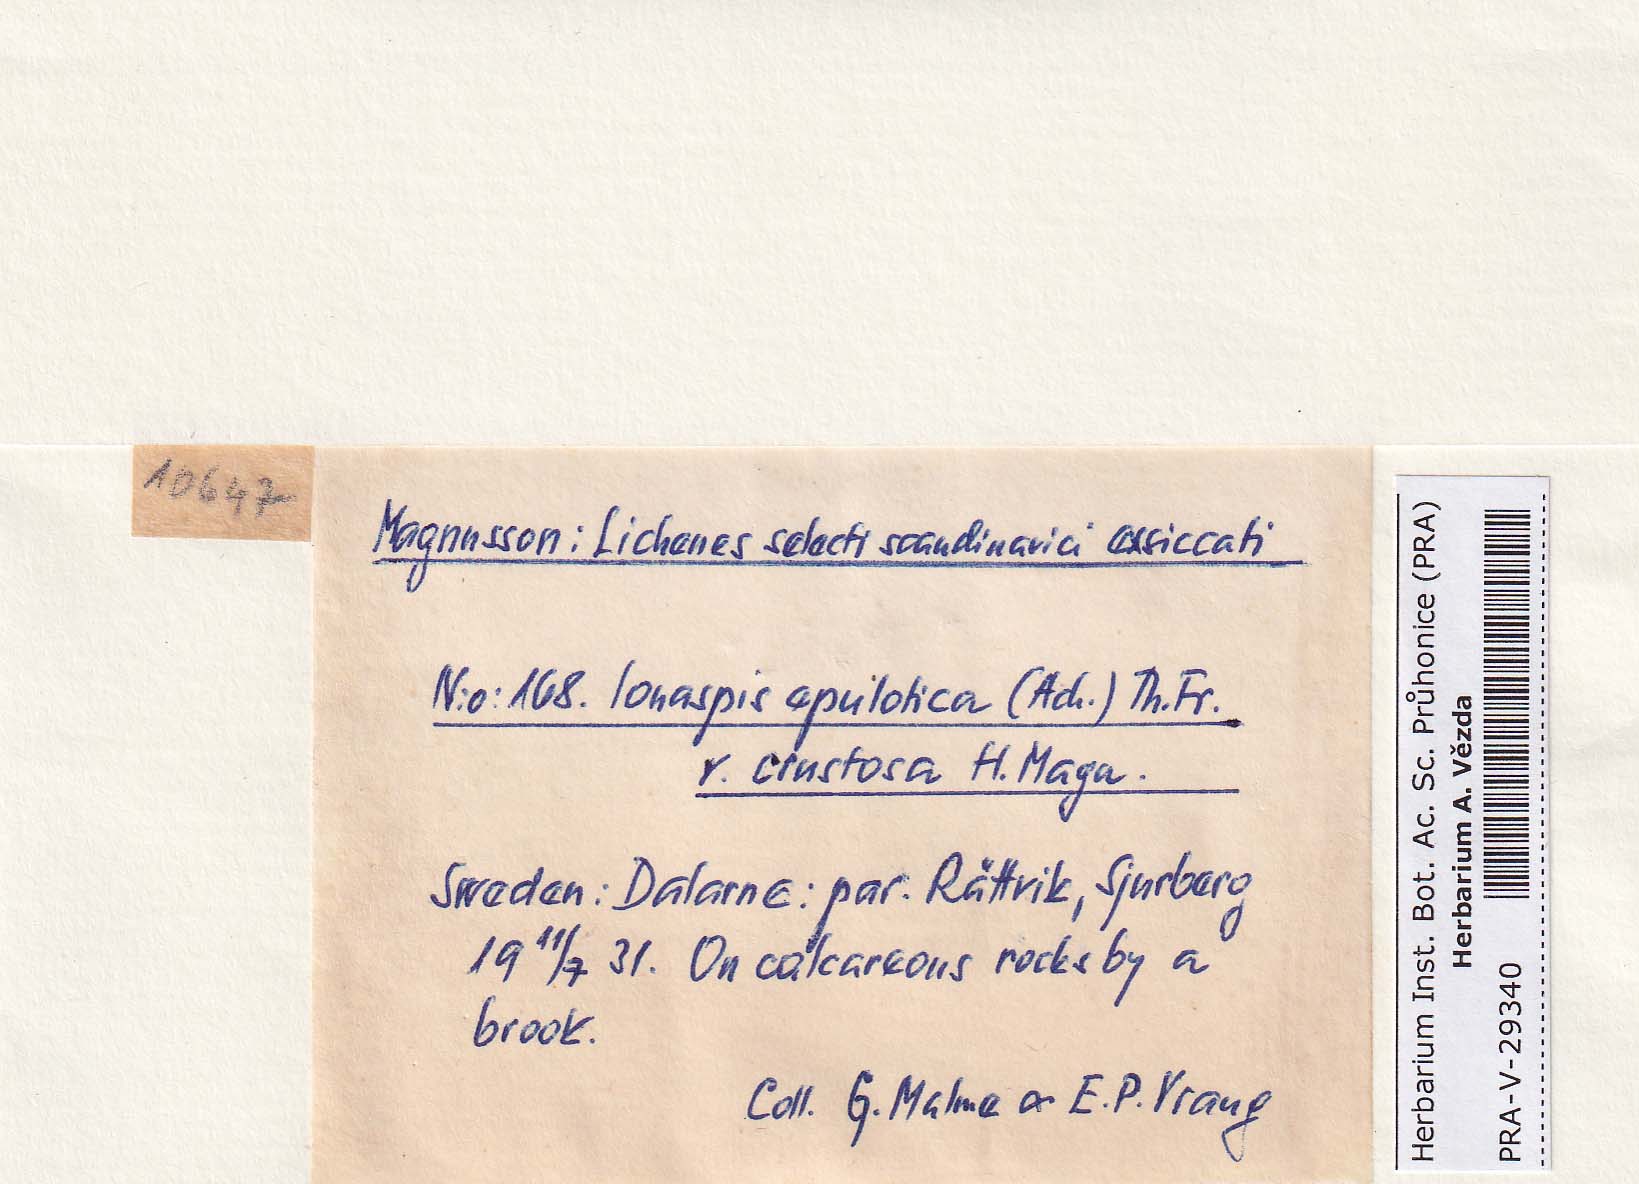 10647
Magnusson: Lichenes selecti scandinavici exsiccati
N:o: 168. Ionaspis epulotica (Ach.) Th. Fr.
v. crustosa H. Magn.
Sweden: Dalarne: par. Rättvik, Sjurberg
19 11/7 31. On calcareous rocks by a
brook.
Coll. G. Malme & E. P. Vrang
Herbarium Inst. Bot. Ac. Sc. Průhonice (PRA)
Herbarium A. Vězda
PRA-V-29340